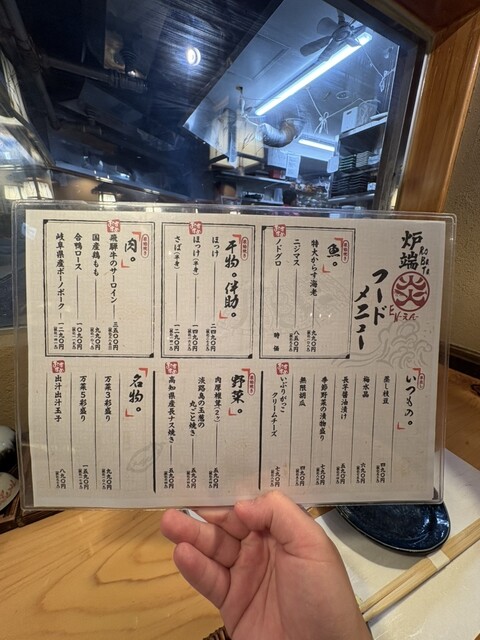 炉端
RoBaTa
炎
び〜えん
フード
メニュー
魚。
特大からす海老
九九〇円
ニジマス
八五〇円
ノドグロ
時価
干物。伴助。
ほっけ
二四九〇円
ほっけ(半身)
一四九〇円
さば(半身)
一二九〇円
肉。
飛騨牛のサーロイン
三五〇〇円
国産鶏もも
九九〇円
合鴨ロース
一〇九〇円
岐阜県産ボーノポーク
一二九〇円
いつもの。
蒸し枝豆
四九〇円
梅水晶
六九〇円
長芋醤油漬け
五九〇円
季節野菜の漬物盛り
七九〇円
無限胡瓜
四九〇円
いぶりがっこ
クリームチーズ
七九〇円
野菜。
肉厚椎茸(2ヶ)
五九〇円
淡路島の玉葱の
丸ごと焼き
五九〇円
高知県産長ナス焼き
五九〇円
名物。
万菜3彩盛り
九九〇円
万菜5彩盛り
一五九〇円
出汁出汁玉子
八九〇円